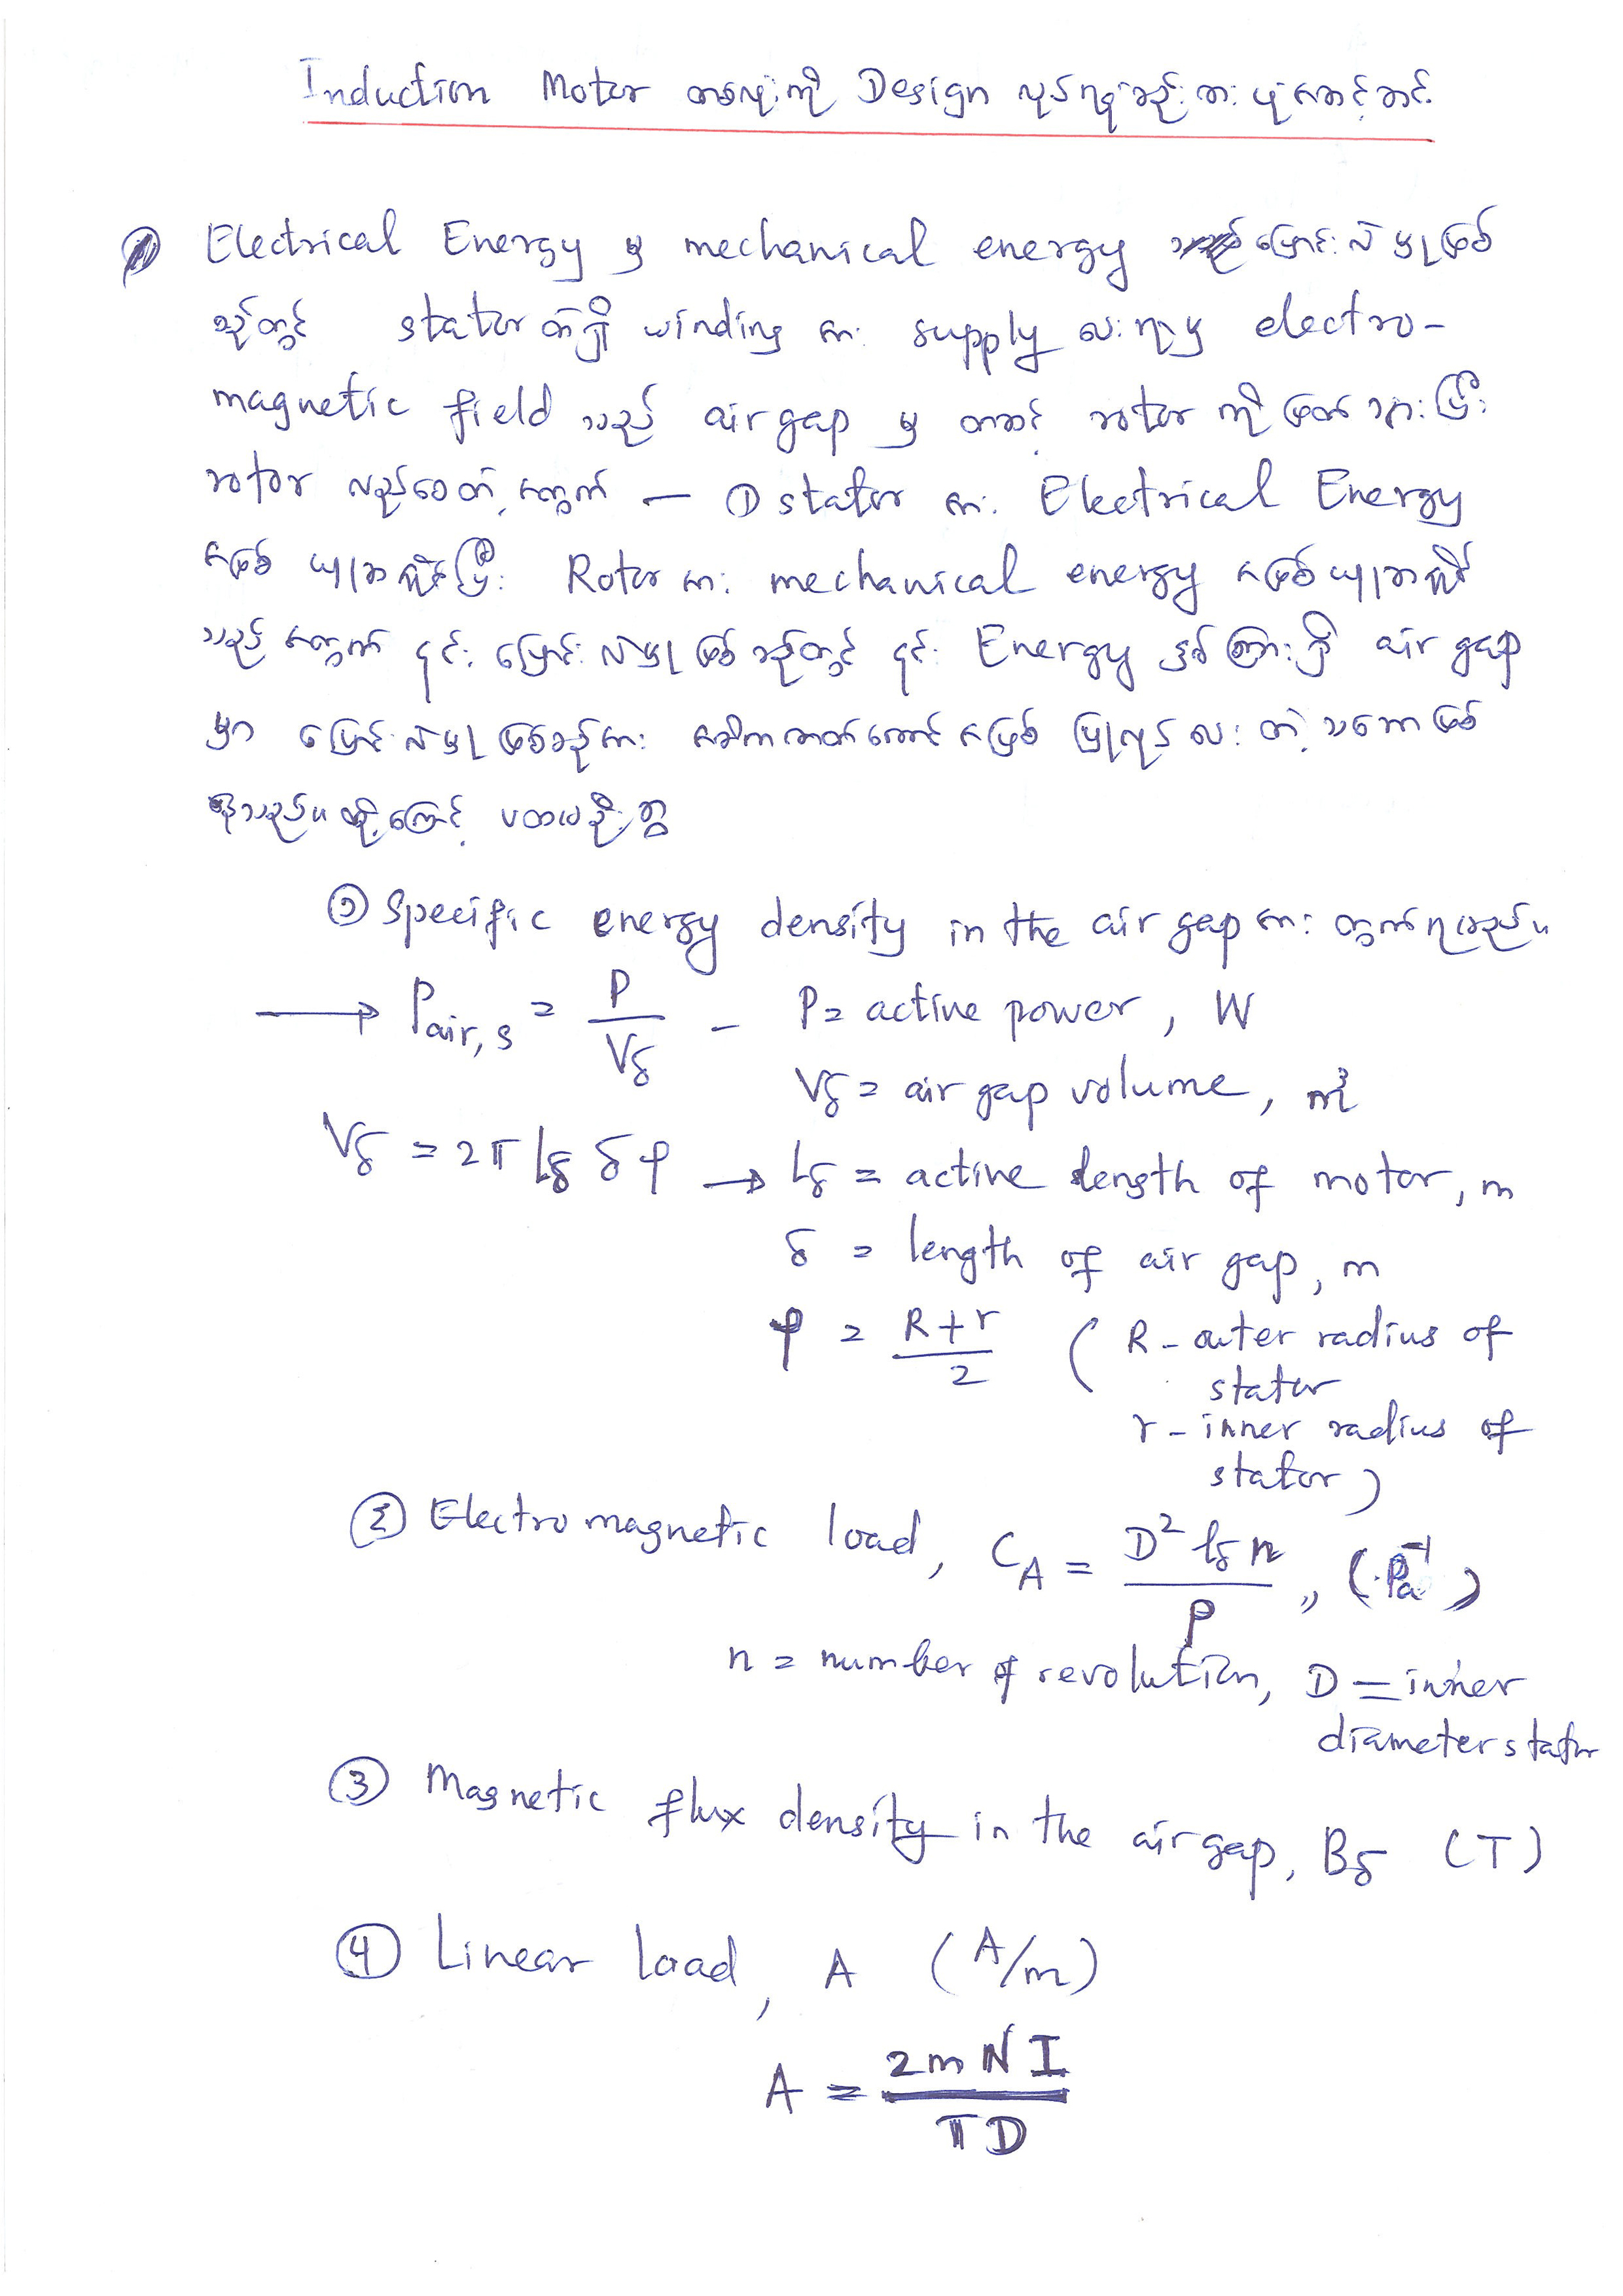 Induction Motor တစ်လုံးကို Design လုပ်ရန်စဉ်းစားပုံအဆင့်ဆင့်
Electrical Energy မှ mechanical energy ပြောင်းလဲမှုဖြစ်
သည်တွင် stator တွင်ရှိ winding အား supply ပေးရာမှ electro-
magnetic field သည် air gap မှ တဆင့် rotor ကိုဖြတ်သွားပြီး
rotor လည်စေတဲ့အတွက် – ① stator အား Electrical Energy
အဖြစ် ယူဆနိုင်ပြီး Rotor အား mechanical energy အဖြစ်ယူဆနိုင်
သည့်အတွက် ၎င်းပြောင်းလဲမှုဖြစ်သည်တွင် ၎င်း Energy နှစ်ကြားရှိ air gap
မှာ ပြောင်းလဲမှုဖြစ်စဉ်အား အဓိကဇာတ်ကောင်အဖြစ် ပြုလုပ်ပေးတဲ့သဘောဖြစ်
သည်။ ထို့ကြောင့် ပထမဦးစွာ
① Specific energy density in the air gap အား တွက်ရမည်။
→ Pair,s = P / Vδ – P = active power, W
Vδ = air gap volume, m³
Vδ = 2π lδ δ φ → lδ = active length of motor, m
δ = length of air gap, m
φ = R+r / 2 ( R – outer radius of
stator
r – inner radius of
stator )
② Electro magnetic load, CA = D² lδ n / P ,, (Pa⁻¹)
n = number of revolution, D = inner
diameter stator
③ Magnetic flux density in the air gap, Bδ (T)
④ Linear load, A (A/m)
A = 2mNI / πD